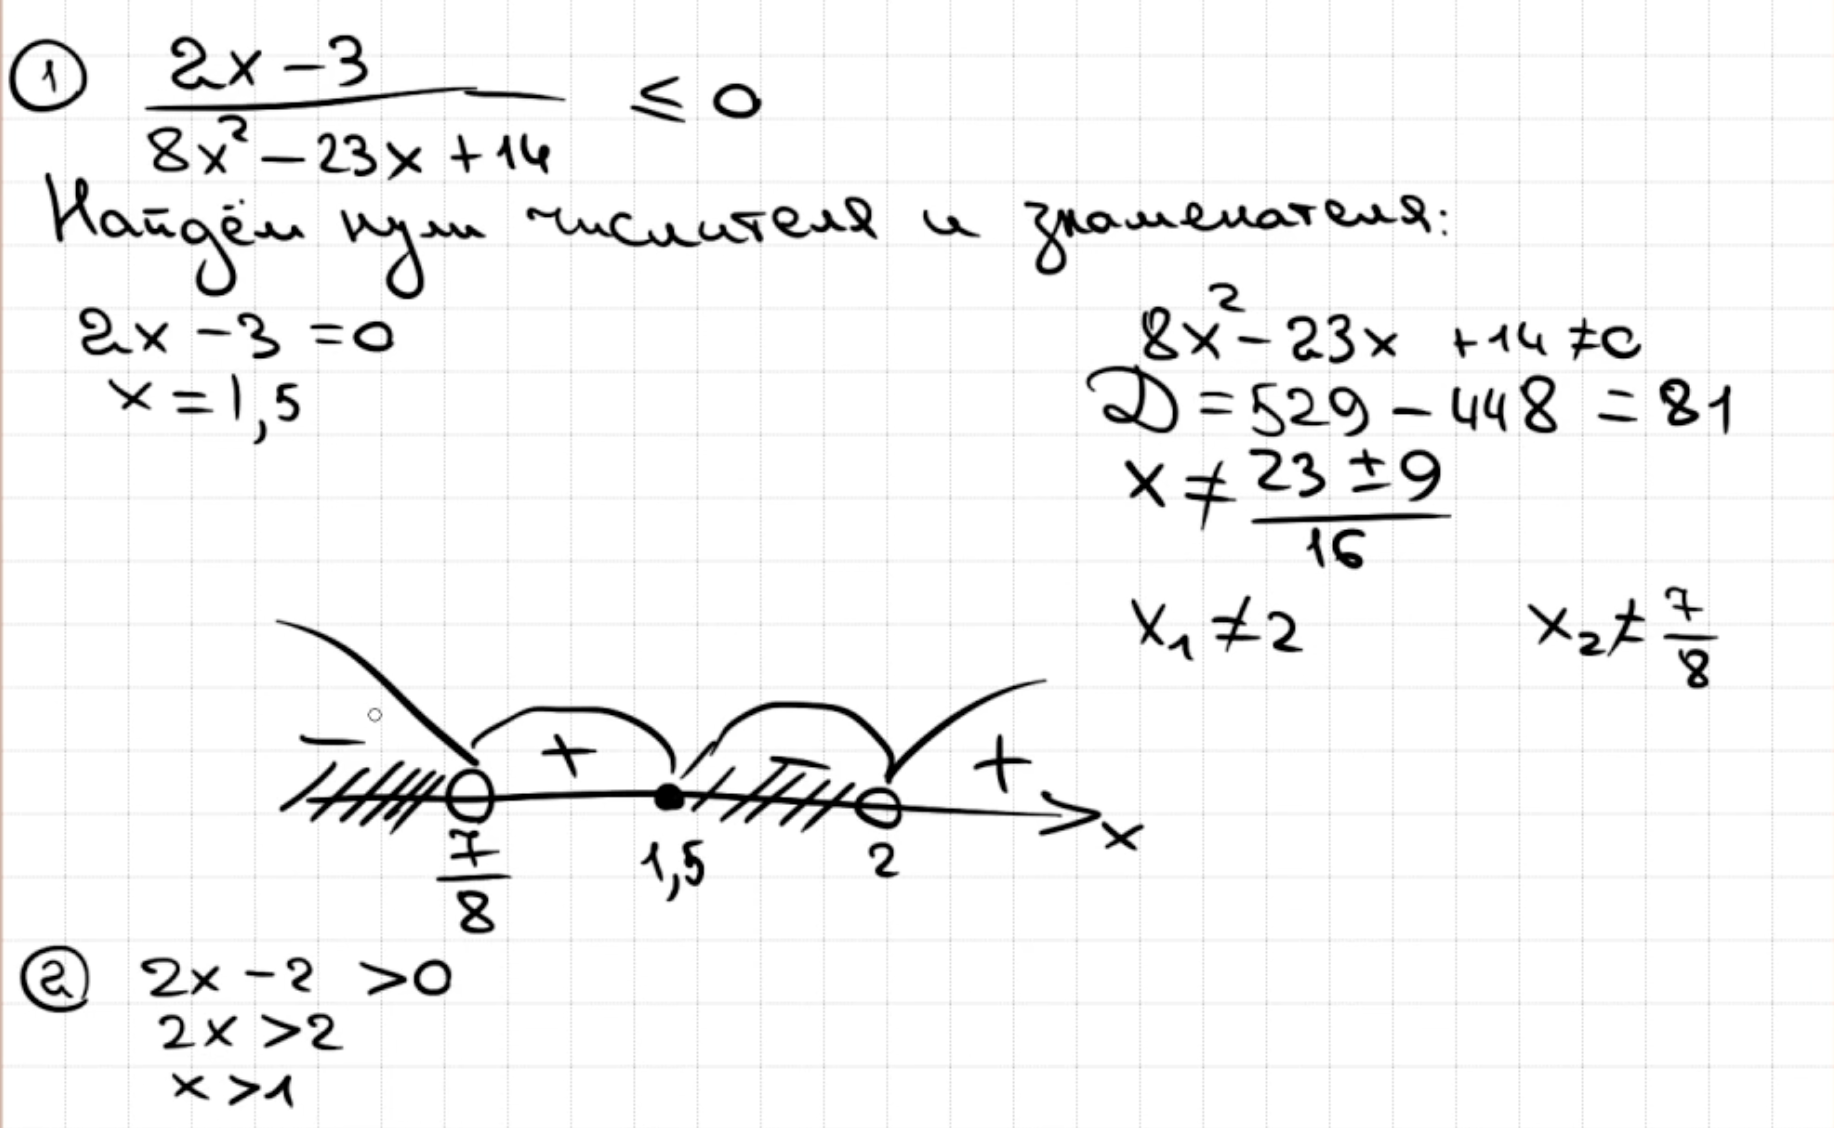 ① (2x − 3)/(8x² − 23x + 14) ≤ 0
Найдём нули числителя и знаменателя:
2x − 3 = 0
x = 1,5
8x² − 23x + 14 ≠ 0
D = 529 − 448 = 81
x ≠ (23 ± 9)/16
x₁ ≠ 2 x₂ ≠ 7/8
− + − +
7/8 1,5 2 x
② 2x − 2 > 0
2x > 2
x > 1